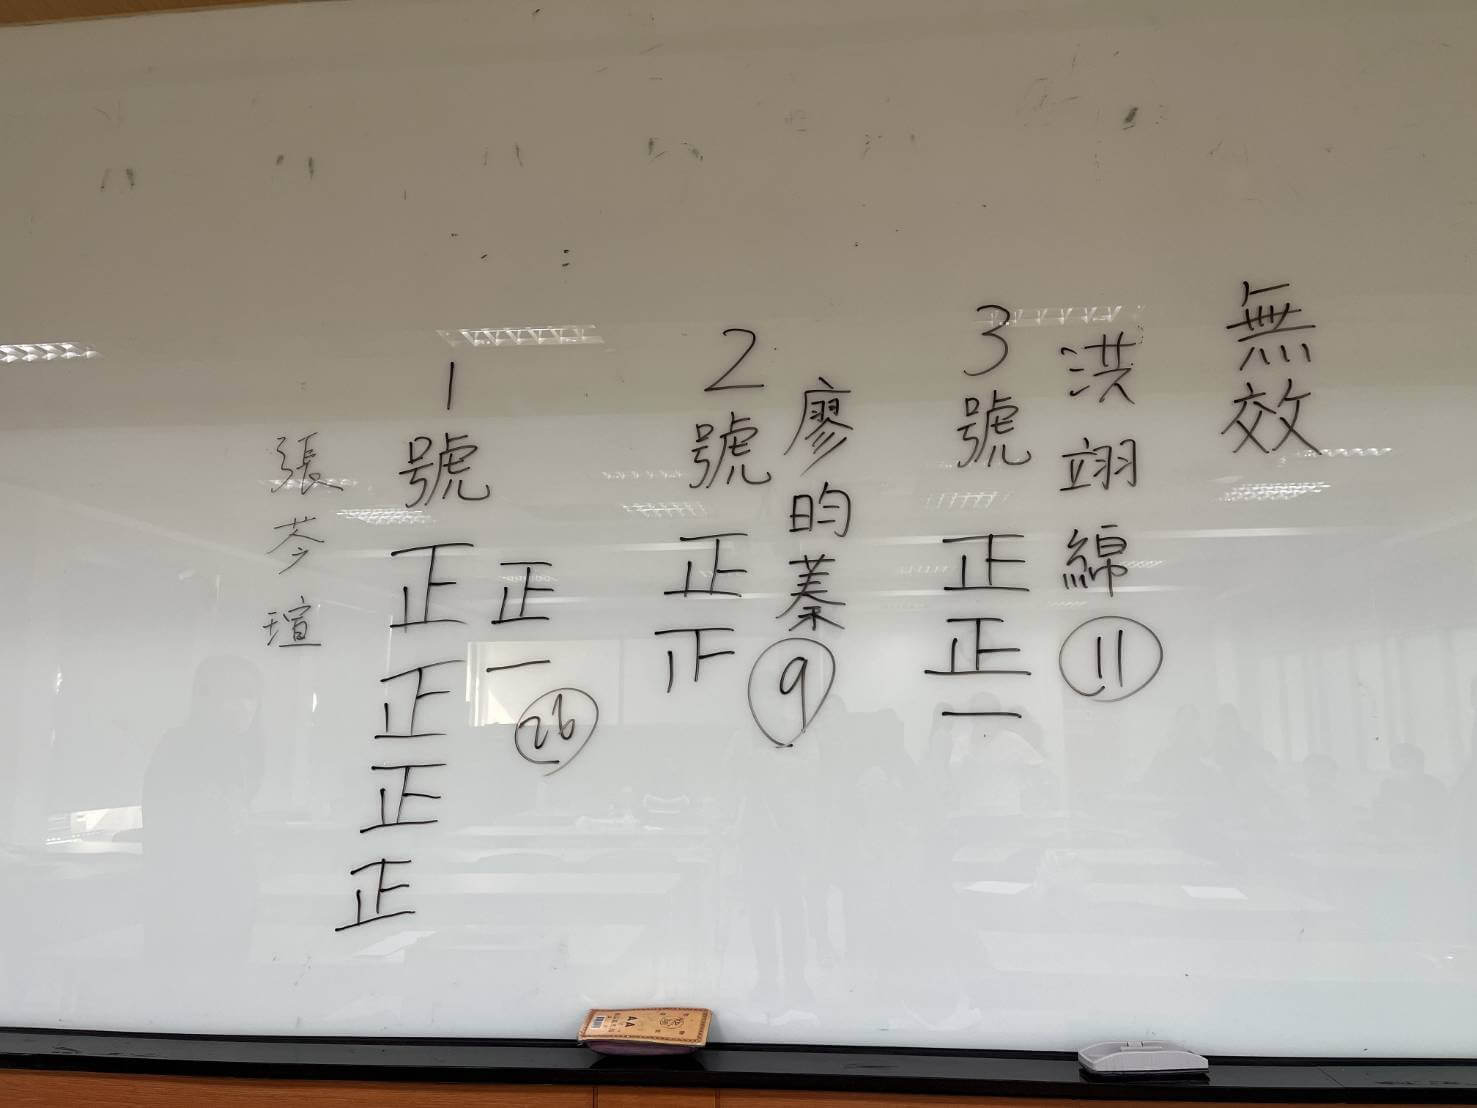 1號
張芩瑄
正正正正
正一
26
2號
廖昀蓁
正正
9
3號
洪翊綿
正正一
11
無效
AA